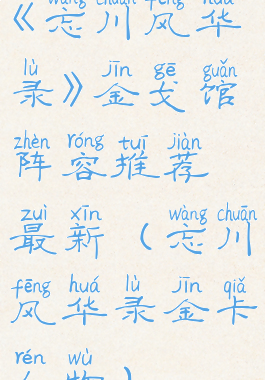 wàng chuān fēng huá
《忘川风华
lù jīn gē guǎn
录》金戈馆
zhèn róng tuī jiàn
阵容推荐
zuì xīn wàng chuān
最新（忘川
fēng huá lù jīn qiǎ
风华录金卡
rén wù
人物）